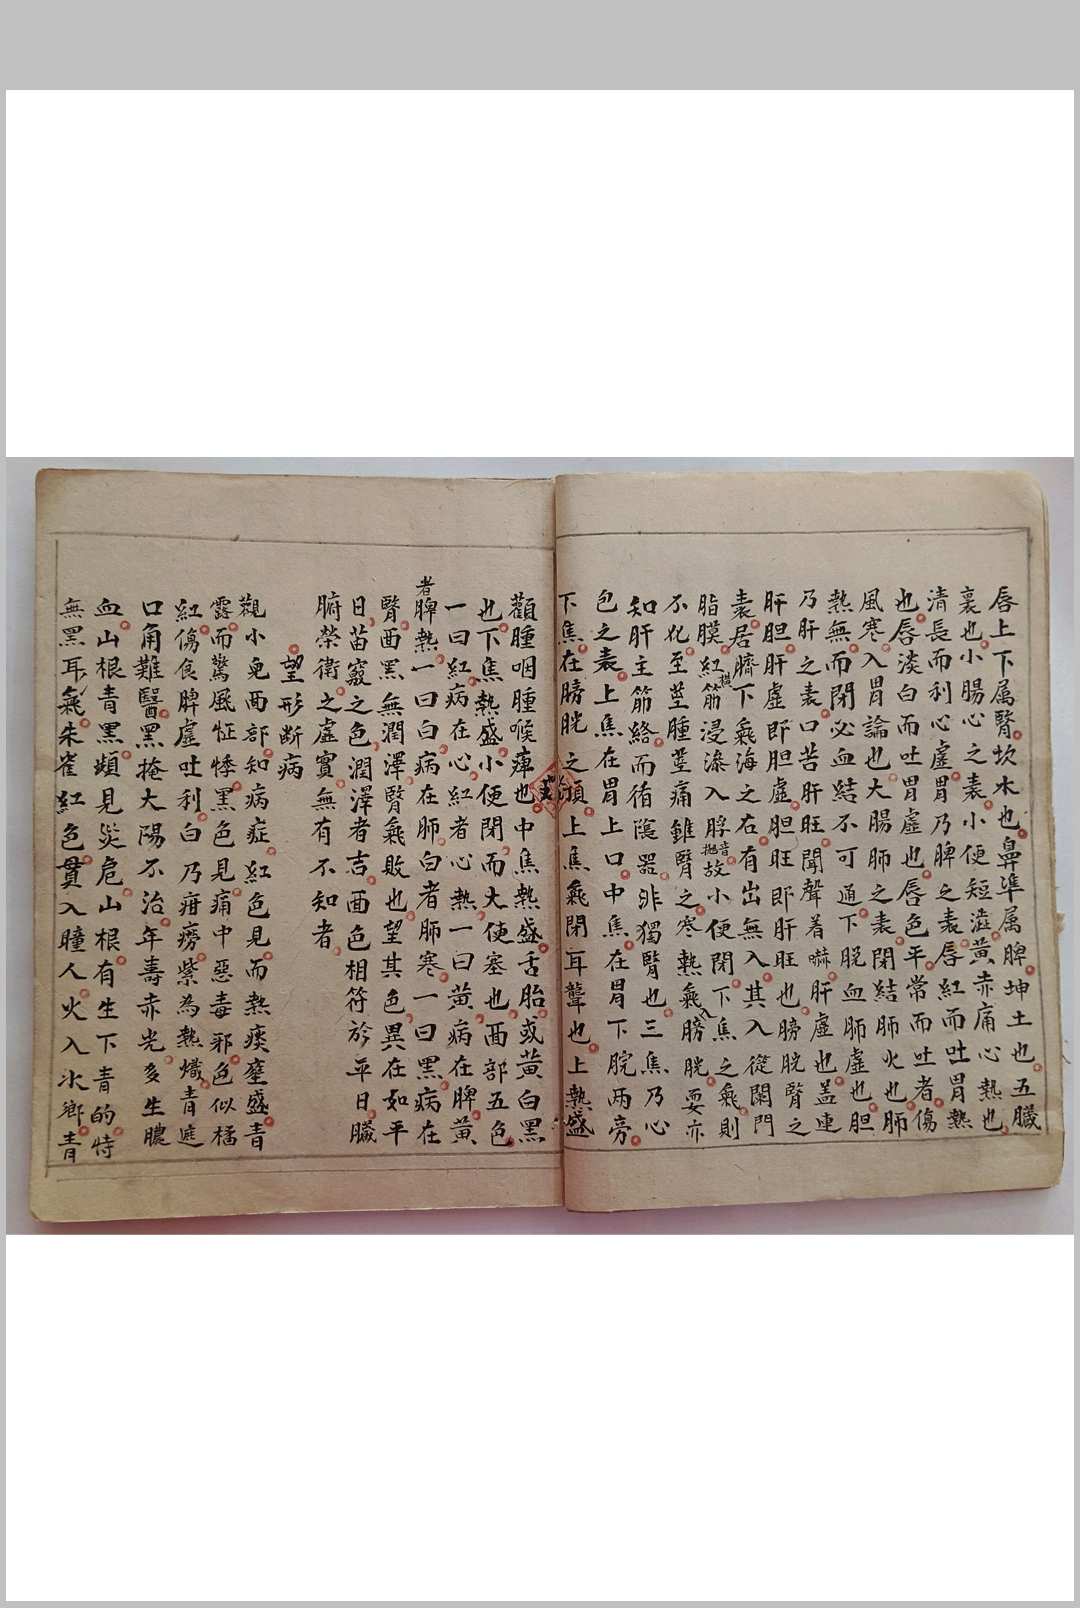 唇上下属腎坎水也鼻準属脾坤土也五臟
裏也小腸心之表小便短澁黃赤痛心熱也
清長而利心虛胃乃脾之表唇紅而吐胃熱
也唇淡白而吐胃虛也唇色平常而吐者傷
風寒入胃論也大腸肺之表閉結肺火也肺
熱無而閉必血結不可通下脫血肺虛也胆
乃肝之表口苦肝旺聞聲着嚇肝虛也蓋連
肝胆肝虛即胆虛胆旺即肝旺也膀胱腎之
表居臍下氣海之右有出無入其入從闌門
脂膜紅筋浸滌入脬故小便閉下焦之氣則
不化至莖腫莖痛錐腎之寒熱氣入膀胱要亦
知肝主筋絡而循陰器非獨腎也三焦乃心
包之表上焦在胃上口中焦在胃下脘两旁
下焦在膀胱之頂上焦氣閉耳聾也上熱盛
顴腫咽腫喉痺也中焦熱盛舌胎或黃白黑
也下焦熱盛小便閉而大便塞也面部五色
一曰紅病在心紅者心熱一曰黃病在脾黃
者脾熱一曰白病在肺白者肺寒一曰黑病在
腎面黑無潤澤腎氣敗也望其色異在如平
日苗竅之色潤澤者吉面色相符於平日臟
腑榮衛之虛實無有不知者
望形断病
觀小兒面部知病症紅色見而熱痰壅盛青
露而驚風怔悸黑色見痛中惡毒邪色似橘
紅傷食脾虛吐利白乃疳癆紫為熱熾青遮
口角難醫黑掩大陽不治年壽赤光多生膿
血山根青黑頻見災危山根有生下青的時
無黑耳氣朱雀紅色貫入瞳人火入水鄉青